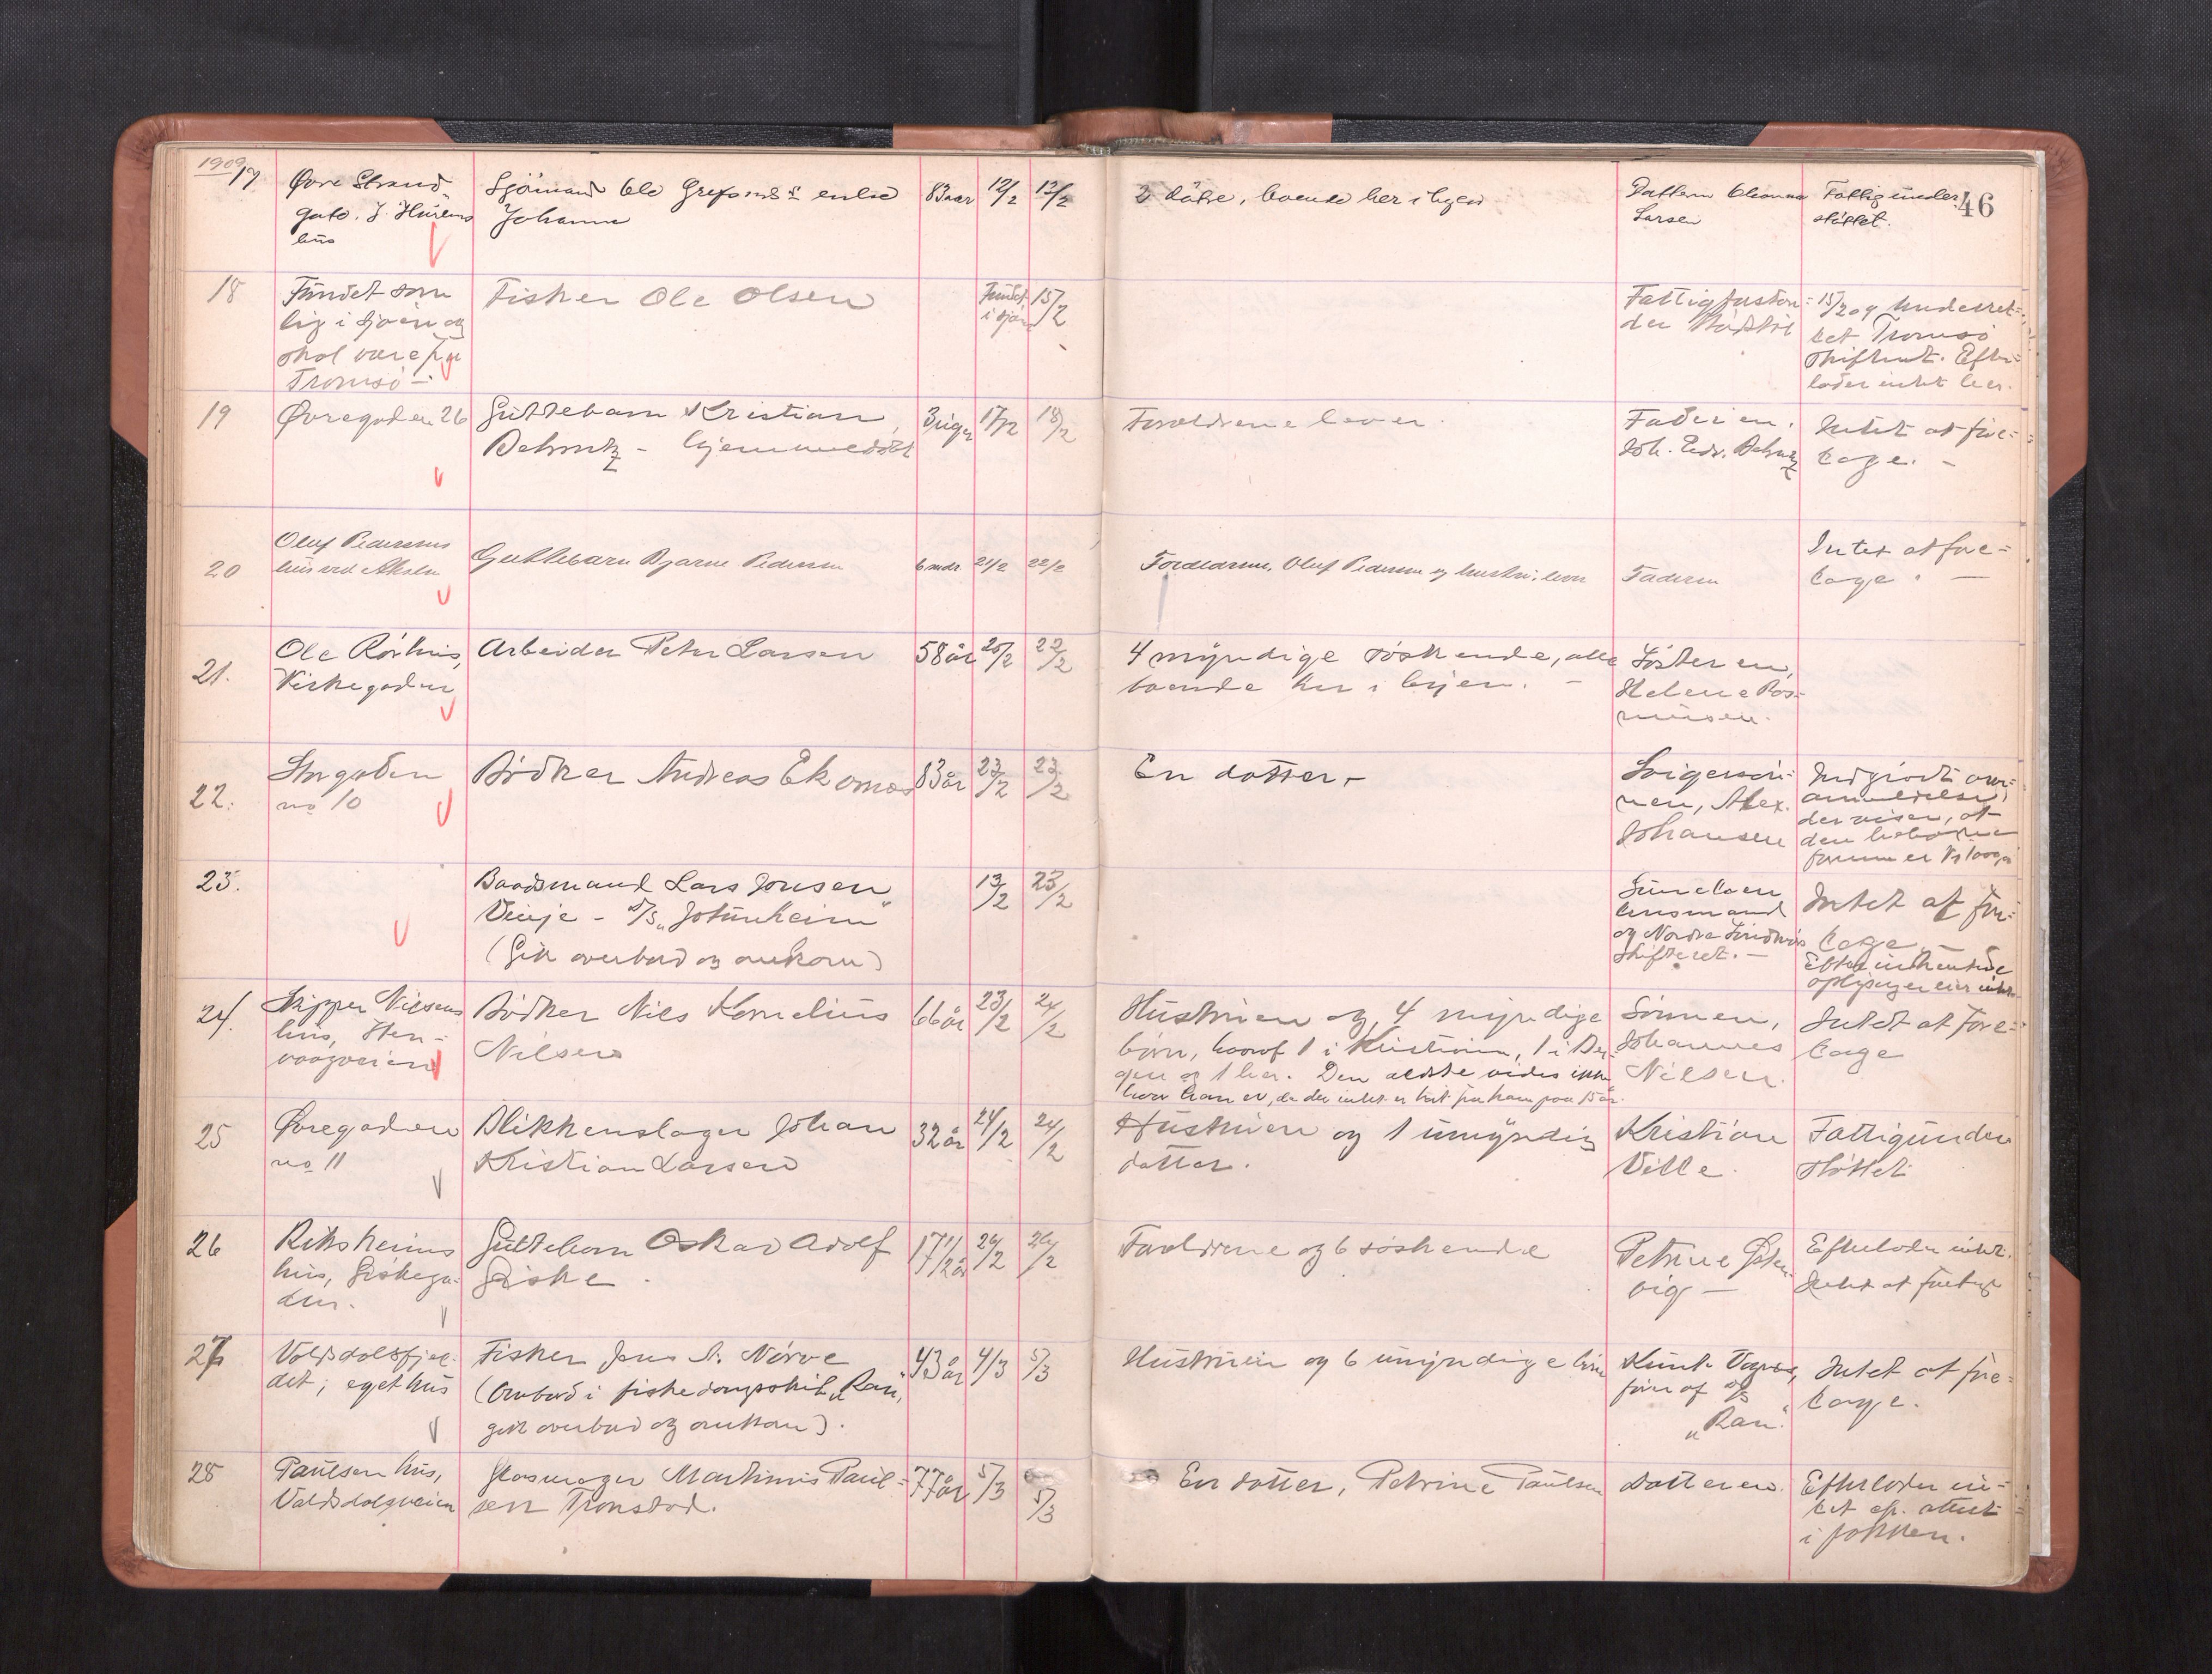 1909
46
17
Øvre Strand
gate. J. 
hus
Sjömand Ole enke
Johanne
83 aar
12/2
12/2
2 døtre, boende her i byen
Datteren
Larsen
Fattigunder
støttet.
18
Fundet som
lig i sjøen og
skal være fra
Tromsø -
Fisker Ole Olsen
Fundet
i sjøen
15/2
Fattigforstan-
der
15/2 09 Underret-
tet Tromsø
skifteret. Efter-
lader intet her.
19
Øvregaden 26
Guttebarn Kristian
- hjemmedøbt
3 uger
17/2
18/2
Forældrene lever.
Faderen,
Joh. Edv.
Intet at fore-
tage. -
20
Oluf Pedersens
hus ved Aksla
Guttebarn Bjarne Pedersen
6 mdr.
21/2
22/2
Forældrene, Oluf Pedersen og hustru, lever
Faderen
Intet at fore-
tage. -
21.
Ole Rørhus,
Kirkegaden
Arbeider Peter Larsen
58 år
20/2
22/2
4 myndige søskende, alle
boende her i byen. -
Søsteren,
Helene Ras-
mussen.
22.
Storgaden
no 10
Bødker Andreas Ekornes
83 år
23/2
23/2
En datter. -
Svigersøn-
nen, Alex.
Johansen
Indgivet
anmeldelse,
der viser, at
den
formue er
23.
Baadsmand Lars Jonsen
Veuje - D/S „Jotunheim"
(Gik overbord og omkom)
13/2
23/2
lensmand
og Nordre Søndmørs
skifteret. -
Intet at fore-
tage. -
Efter indhentede
oplysninger eier intet
24.
Skipper Nilsens
hus, Sten-
vaagveien
Bødker Nils Kornelius
Nilsen
66 år
23/2
24/2
Hustruen og 4 myndige
børn, hvoraf 1 i Kristiania, 1 i Ber-
gen og 1 her. Den ældste vides ikke
hvor han er, da der intet er hørt fra ham paa 15 år.
Sønnen,
Johannes
Nilsen.
Intet at fore-
tage
25
Øvregaden
no 11
Blikkenslager Johan
Kristian Larsen
32 år
24/2
24/2
Hustruen og 1 umyndig
datter.
Kristiane
Ville.
Fattigunder
støttet
26
Riksheims
hus, Giskega-
den.
Guttebarn Oskar Adolf
Giske.
1 1/2 år
26/2
26/2
Forældrene og 6 søskende
Petrine
vig -
Efterlader intet.
Intet at foretage
27
Volsdalsfjel-
det, eget hus
Fisker Jens A. Nørve
(Ombord i fiskedampskib „Ran",
gik overbord og omkom).
43 år
4/3
5/3
Hustruen og 6 umyndige børn
Knut Vagnes,
fører af D/S
„Ran".
Intet at fore-
tage.
28
Paulsen hus,
Volsdalsveien
Glasmager Martinus Paul-
sen Tronstad.
77 år
5/3
5/3
En datter, Petrine Paulsen
Datteren.
Efterlader in-
tet efr. attest
i pakken.